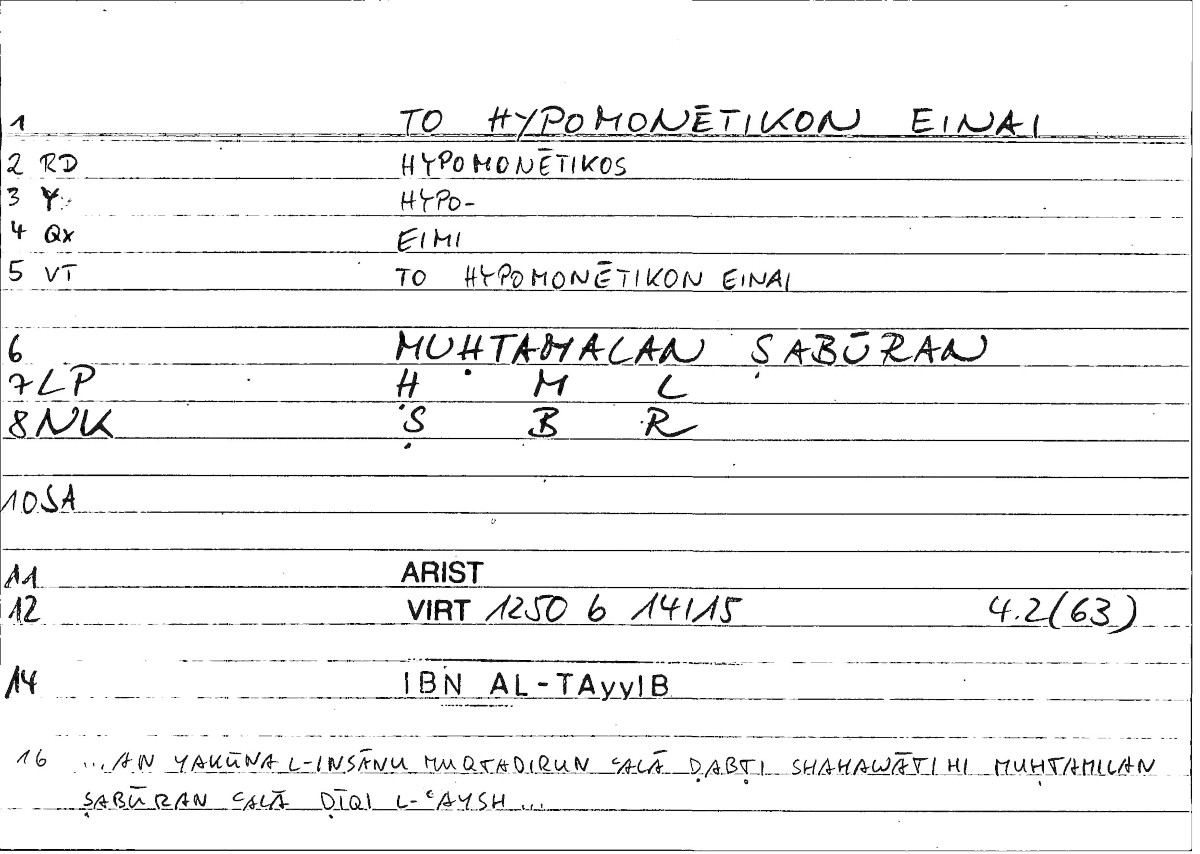 1 TO HYPOMONĒTIKON EINAI
2 RD HYPOMONĒTIKOS
3 Y HYPO-
4 QX EIMI
5 VT TO HYPOMONĒTIKON EINAI
6 MUḤTAMALAN ṢABŪRAN
7 LP Ḥ M L
8 NK Ṣ B R
10 SA
11 ARIST
12 VIRT 1250 b 14/15 4.2(63)
14 IBN AL-TAyyIB
16 ...AN YAKŪNA L-INSĀNU MUQTADIRUN ʿALĀ ḌABṬI SHAHAWĀTIHI MUḤTAMILAN
ṢABŪRAN ʿALĀ ḌĪQI L-ʿAYSH...